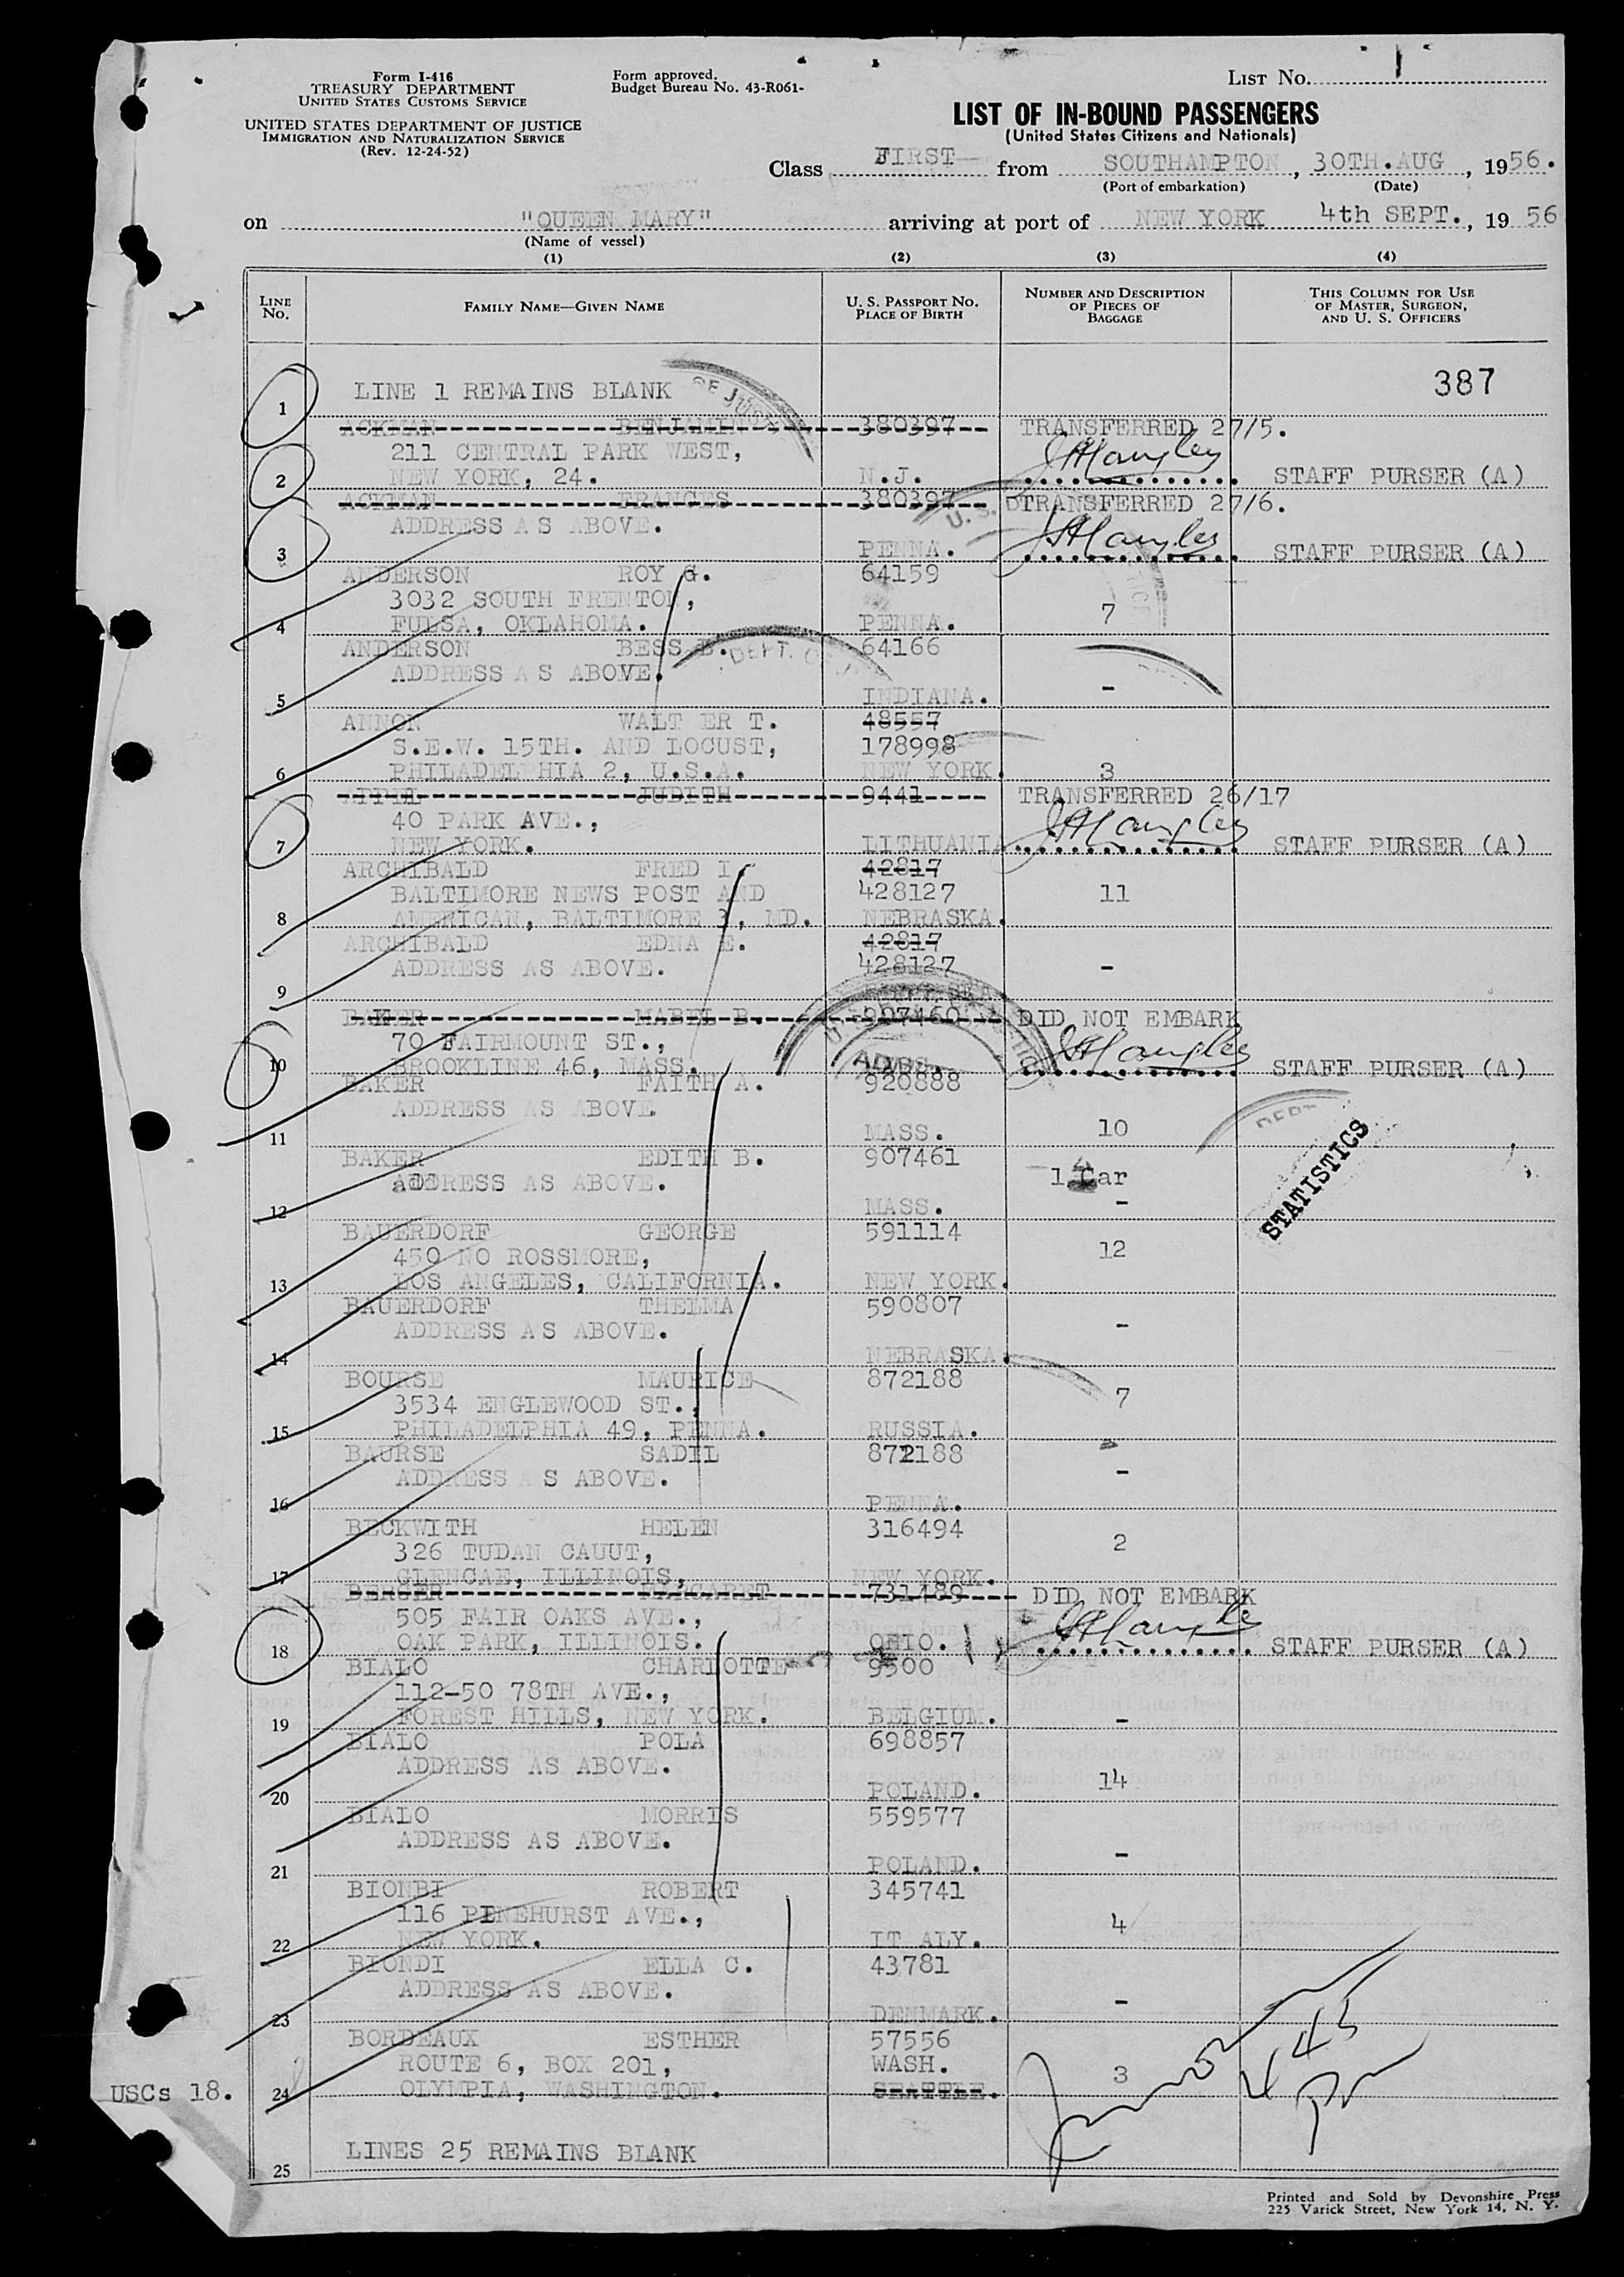 Form I-416
TREASURY DEPARTMENT
UNITED STATES CUSTOMS SERVICE
UNITED STATES DEPARTMENT OF JUSTICE
IMMIGRATION AND NATURALIZATION SERVICE
(Rev. 12-24-52)
Form approved.
Budget Bureau No. 43-R061-
LIST NO. 1
LIST OF IN-BOUND PASSENGERS
(United States Citizens and Nationals)
Class FIRST from SOUTHAMPTON, 30TH.AUG, 1956.
(Port of embarkation) (Date)
on "QUEEN MARY" arriving at port of NEW YORK 4th SEPT., 1956
(Name of vessel)
(1) (2) (3) (4)
LINE NO. FAMILY NAME—GIVEN NAME U. S. PASSPORT NO. PLACE OF BIRTH NUMBER AND DESCRIPTION OF PIECES OF BAGGAGE THIS COLUMN FOR USE OF MASTER, SURGEON, AND U. S. OFFICERS
387
1 LINE 1 REMAINS BLANK
ACKMAN BENJAMIN 380397 TRANSFERRED 27/5.
211 CENTRAL PARK WEST,
2 NEW YORK, 24. N.J. STAFF PURSER (A)
ACKMAN FRANCES 380397 TRANSFERRED 27/6.
ADDRESS AS ABOVE.
3 PENNA. STAFF PURSER (A)
ANDERSON ROY G. 64159
3032 SOUTH FRENTON, 7
4 FULSA, OKLAHOMA. PENNA.
ANDERSON BESS 64166
ADDRESS AS ABOVE.
5 INDIANA. -
ANNON WALTER T. 48557
S.E.W. 15TH. AND LOCUST, 178998
6 PHILADELPHIA 2, U.S.A. NEW YORK. 3
APPEL JUDITH 9441 TRANSFERRED 26/17
40 PARK AVE.,
7 NEW YORK. LITHUANIA. STAFF PURSER (A)
ARCHIBALD FRED I. 42817
BALTIMORE NEWS POST AND 428127 11
8 AMERICAN, BALTIMORE 3, MD. NEBRASKA.
ARCHIBALD EDNA E. 42817
ADDRESS AS ABOVE. 428127 -
9
BAKER MABEL B. 907460 DID NOT EMBARK
70 FAIRMOUNT ST.,
10 BROOKLINE 46, MASS. STAFF PURSER (A)
BAKER FAITH A. 920888
ADDRESS AS ABOVE
11 MASS. 10
BAKER EDITH B. 907461
ADDRESS AS ABOVE. 1 Car
12 MASS. -
STATISTICS
BAUERDORF GEORGE 591114
450 NO ROSSMORE, 12
13 LOS ANGELES, CALIFORNIA. NEW YORK.
BAUERDORF THELMA 590807
ADDRESS AS ABOVE. -
14 NEBRASKA.
BOURSE MAURICE 872188
3534 ENGLEWOOD ST., 7
15 PHILADELPHIA 49, PENNA. RUSSIA.
BAURSE SADIL 872188
ADDRESS AS ABOVE. -
16 PENNA.
BECKWITH HELEN 316494
326 TUDAN CAUUT, 2
17 GLENCAE, ILLINOIS, NEW YORK.
BERGER MARGARET 731489 DID NOT EMBARK
505 FAIR OAKS AVE.,
18 OAK PARK, ILLINOIS. OHIO. STAFF PURSER (A)
BIALO CHARLOTTE 9500
112-50 78TH AVE.,
19 FOREST HILLS, NEW YORK. BELGIUM. -
BIALO POLA 698857
ADDRESS AS ABOVE.
20 POLAND. 14
BIALO MORRIS 559577
ADDRESS AS ABOVE.
21 POLAND. -
BIONBI ROBERT 345741
116 PINEHURST AVE., 4
22 NEW YORK. ITALY.
BIONDI ELLA C. 43781
ADDRESS AS ABOVE.
23 DENMARK. -
BORDEAUX ESTHER 57556
ROUTE 6, BOX 201, WASH. 3
USCs 18. 24 OLYMPIA, WASHINGTON. SEATTLE.
25 LINES 25 REMAINS BLANK
Printed and Sold by Devonshire Press
225 Varick Street, New York 14, N. Y.